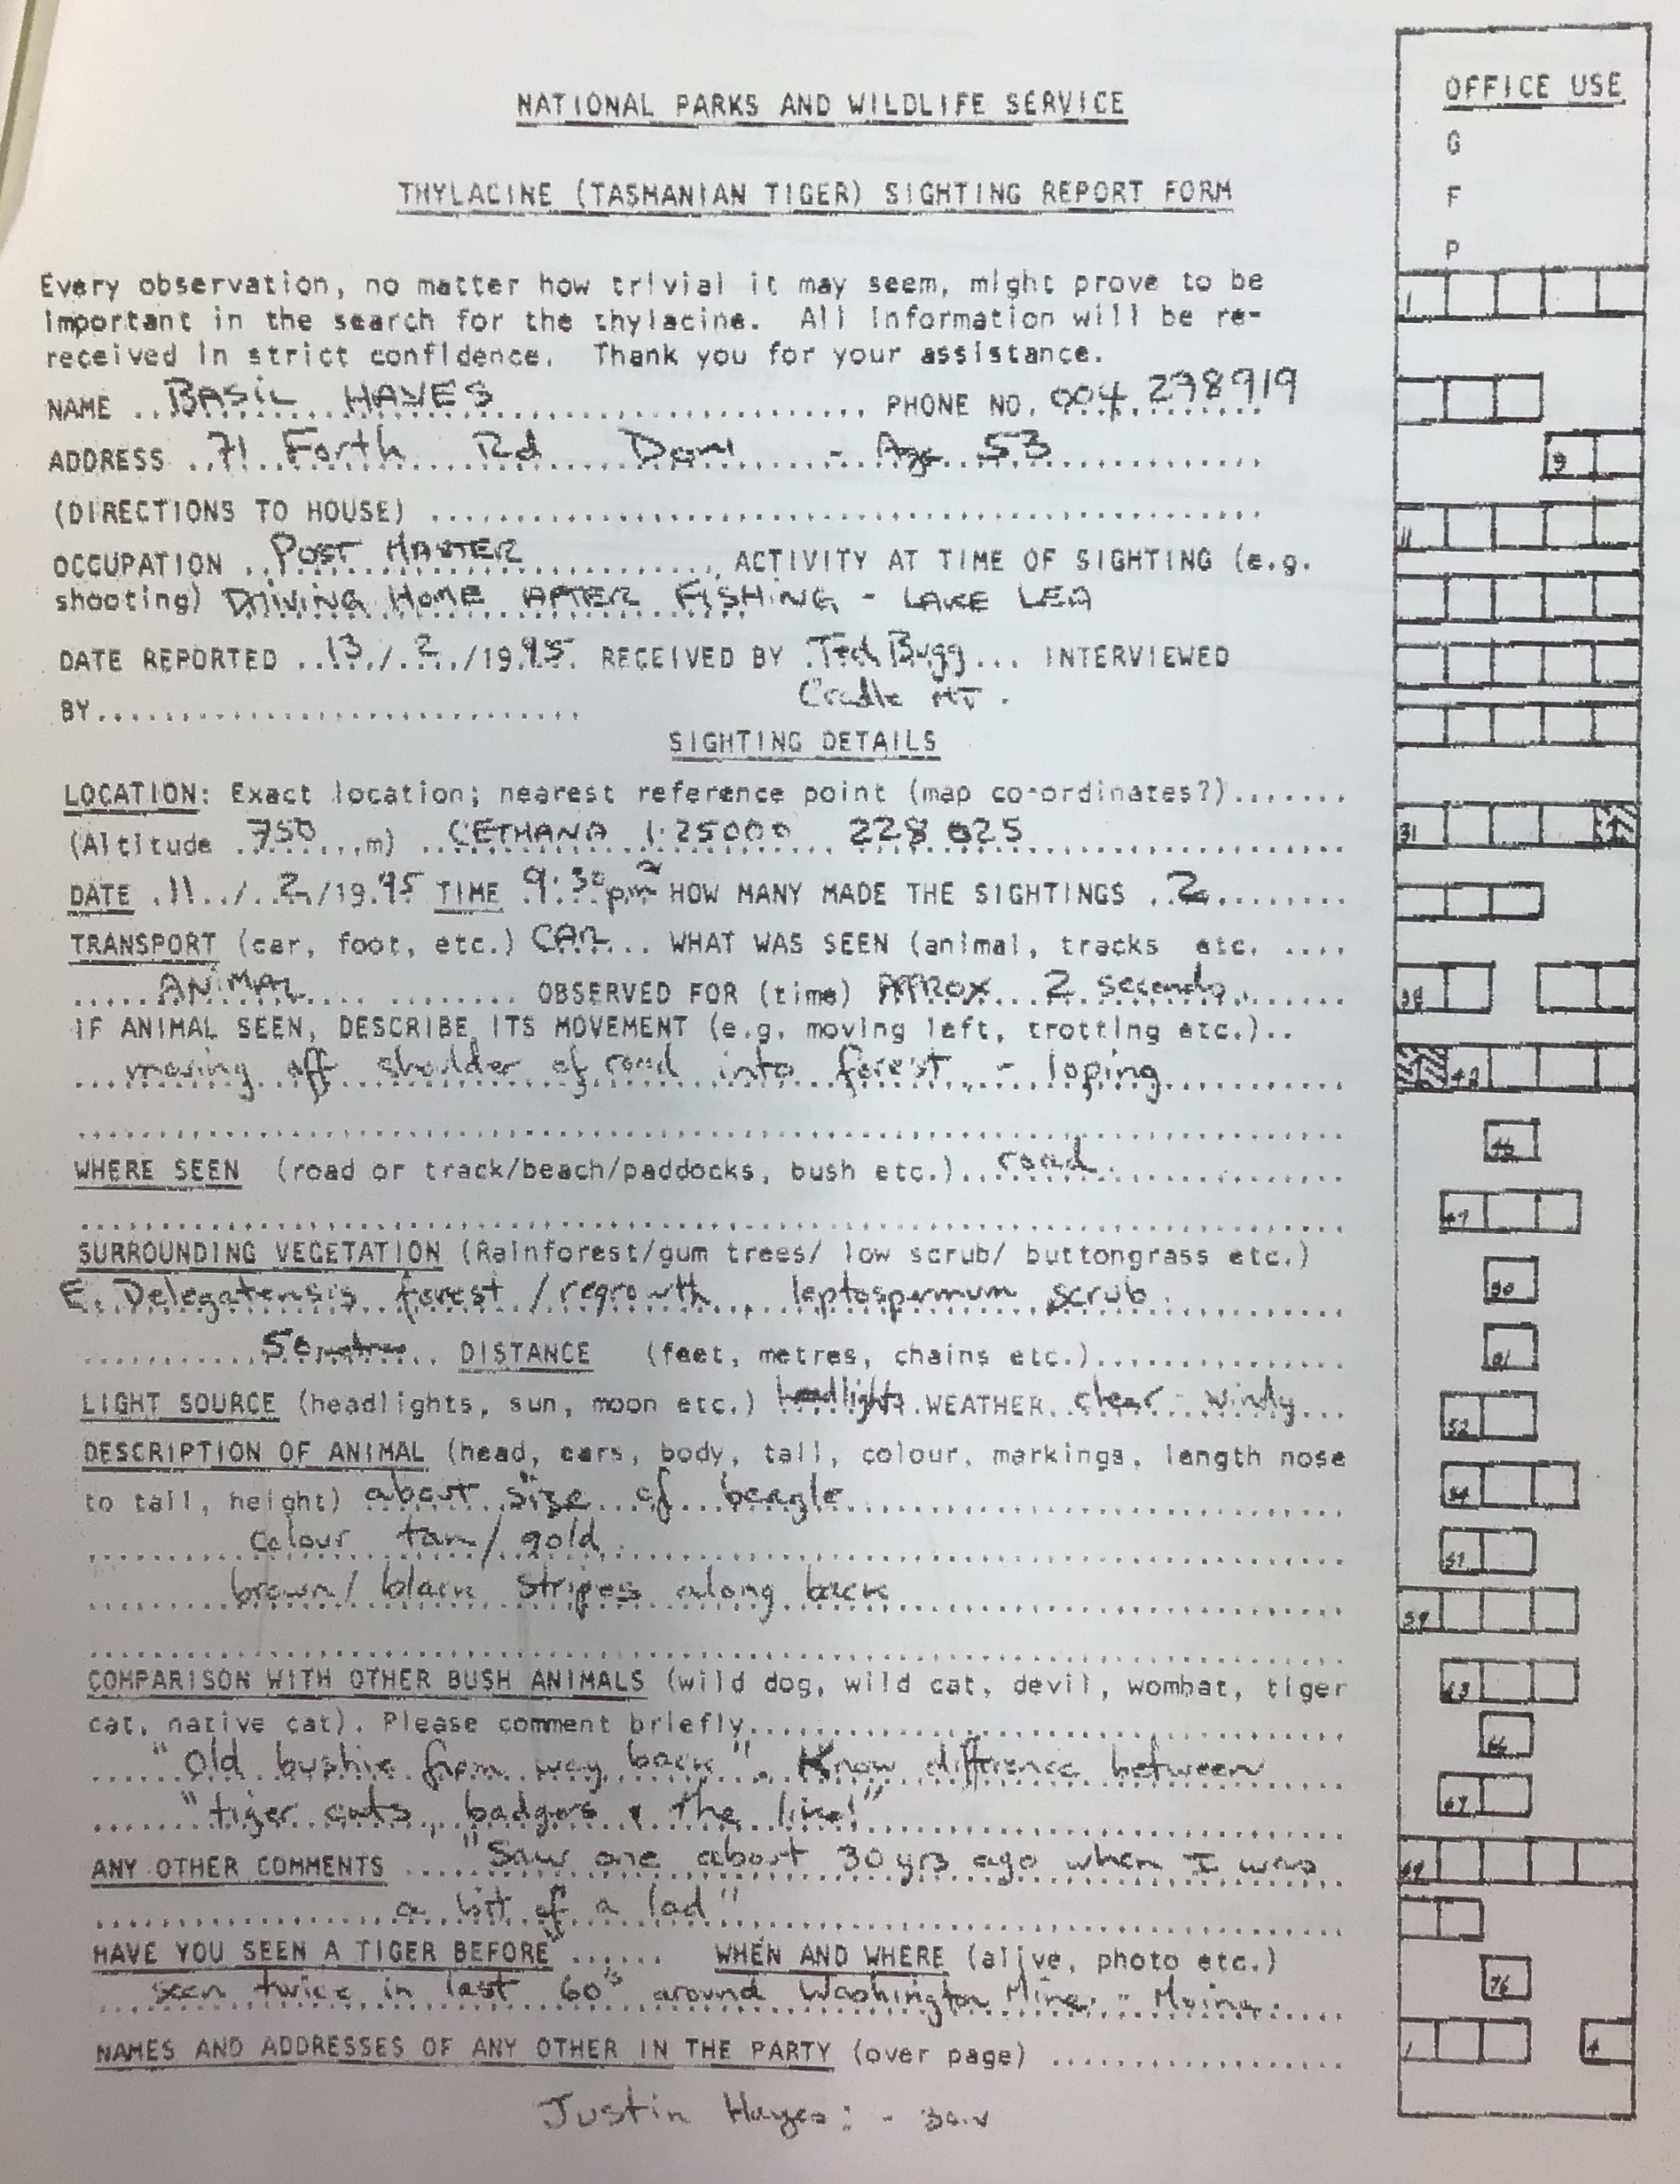 OFFICE USE
G
F
P
NATIONAL PARKS AND WILDLIFE SERVICE
THYLACINE (TASMANIAN TIGER) SIGHTING REPORT FORM
Every observation, no matter how trivial it may seem, might prove to be
important in the search for the thylacine. All information will be re-
received in strict confidence. Thank you for your assistance.
NAME BASIL HAYES PHONE NO. 004 278919
ADDRESS 71 Forth Rd Don - Age 53
(DIRECTIONS TO HOUSE)
OCCUPATION POST MASTER ACTIVITY AT TIME OF SIGHTING (e.g.
shooting) DRIVING HOME AFTER FISHING - LAKE LEA
DATE REPORTED 13/2/1995 RECEIVED BY Ted Bugg INTERVIEWED
Cradle MT.
BY
SIGHTING DETAILS
LOCATION: Exact location; nearest reference point (map co-ordinates?)
(Altitude 750 m) CETHANA 1:25000 228 025
DATE 11/2/1995 TIME 9:30pm HOW MANY MADE THE SIGHTINGS 2
TRANSPORT (car, foot, etc.) CAR WHAT WAS SEEN (animal, tracks etc.
ANIMAL OBSERVED FOR (time) APPROX 2 seconds
IF ANIMAL SEEN, DESCRIBE ITS MOVEMENT (e.g. moving left, trotting etc.)
moving off shoulder of road into forest - loping
WHERE SEEN (road or track/beach/paddocks, bush etc.) road
SURROUNDING VEGETATION (Rainforest/gum trees/ low scrub/ buttongrass etc.)
E. Delegatensis forest / regrowth, leptospermum scrub
50 metres DISTANCE (feet, metres, chains etc.)
LIGHT SOURCE (headlights, sun, moon etc.) headlights WEATHER clear - windy
DESCRIPTION OF ANIMAL (head, ears, body, tail, colour, markings, length nose
to tail, height) about size of beagle
colour tan/gold
brown/black stripes along back
COMPARISON WITH OTHER BUSH ANIMALS (wild dog, wild cat, devil, wombat, tiger
cat, native cat). Please comment briefly
"Old bushie from way back". Know difference between
"tiger cats, badgers & the like!"
ANY OTHER COMMENTS "Saw one about 30 yrs ago when I was
a bit of a lad"
HAVE YOU SEEN A TIGER BEFORE WHEN AND WHERE (alive, photo etc.)
seen twice in last 60's around Washington Mine - Moina.
NAMES AND ADDRESSES OF ANY OTHER IN THE PARTY (over page)
Justin Hayes: -
1
9
11
31
38
42
46
47
50
51
52
54
57
59
63
66
67
69
76
1
4